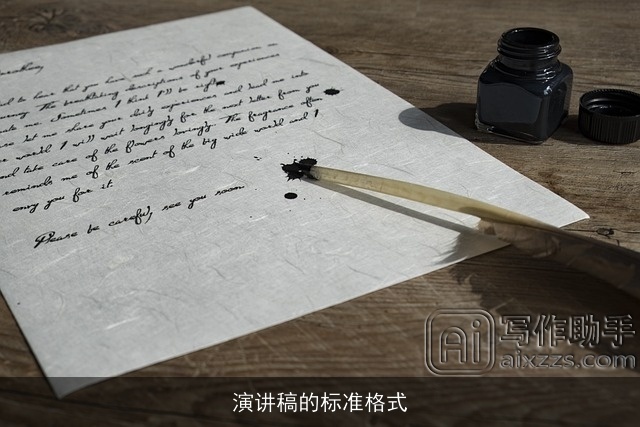 to hear that you have had a wonderful experience on
The breathtaking descriptions of your experiences
me. Sometimes I think it's so
let me share your daily experiences and lead me into
world! I will wait longingly for the next letter from you
and take care of the flowers lovingly. The fragrance of
reminds me of the scent of the big wide world and I
envy you for it.
Please be careful, see you soon
Ai写作助手
aixzzs.com
演讲稿的标准格式